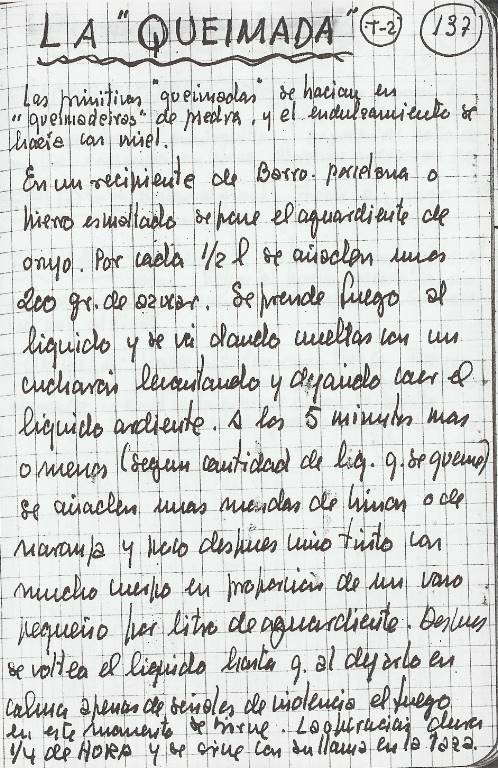 LA "QUEIMADA" T-2 137
Las primitivas "queimadas" se hacian en
"queimadeiras" de piedra, y el endulzamiento se
hacía con miel.
En un recipiente de Barro. porcelana o
hierro esmaltado se pone el aguardiente de
orujo. Por cada 1/2 l se añaden unos
200 gr. de azucar. Se prende fuego al
liquido y se vá dando vueltas con un
cucharón levantando y dejando caer el
liquido ardiente. A los 5 minutos mas
o menos (segun cantidad de liq. q. se queme)
se añaden unas mondas de limon o de
naranja y poco despues vino tinto con
mucho cuerpo en proporcion de un vaso
pequeño por litro de aguardiente. Despues
se voltea el liquido hasta q. al dejarlo en
calma apenas de señales de violencia el fuego
en este momento se sirve. La operacion dura
1/4 de HORA y se sirve con su llama en la taza.